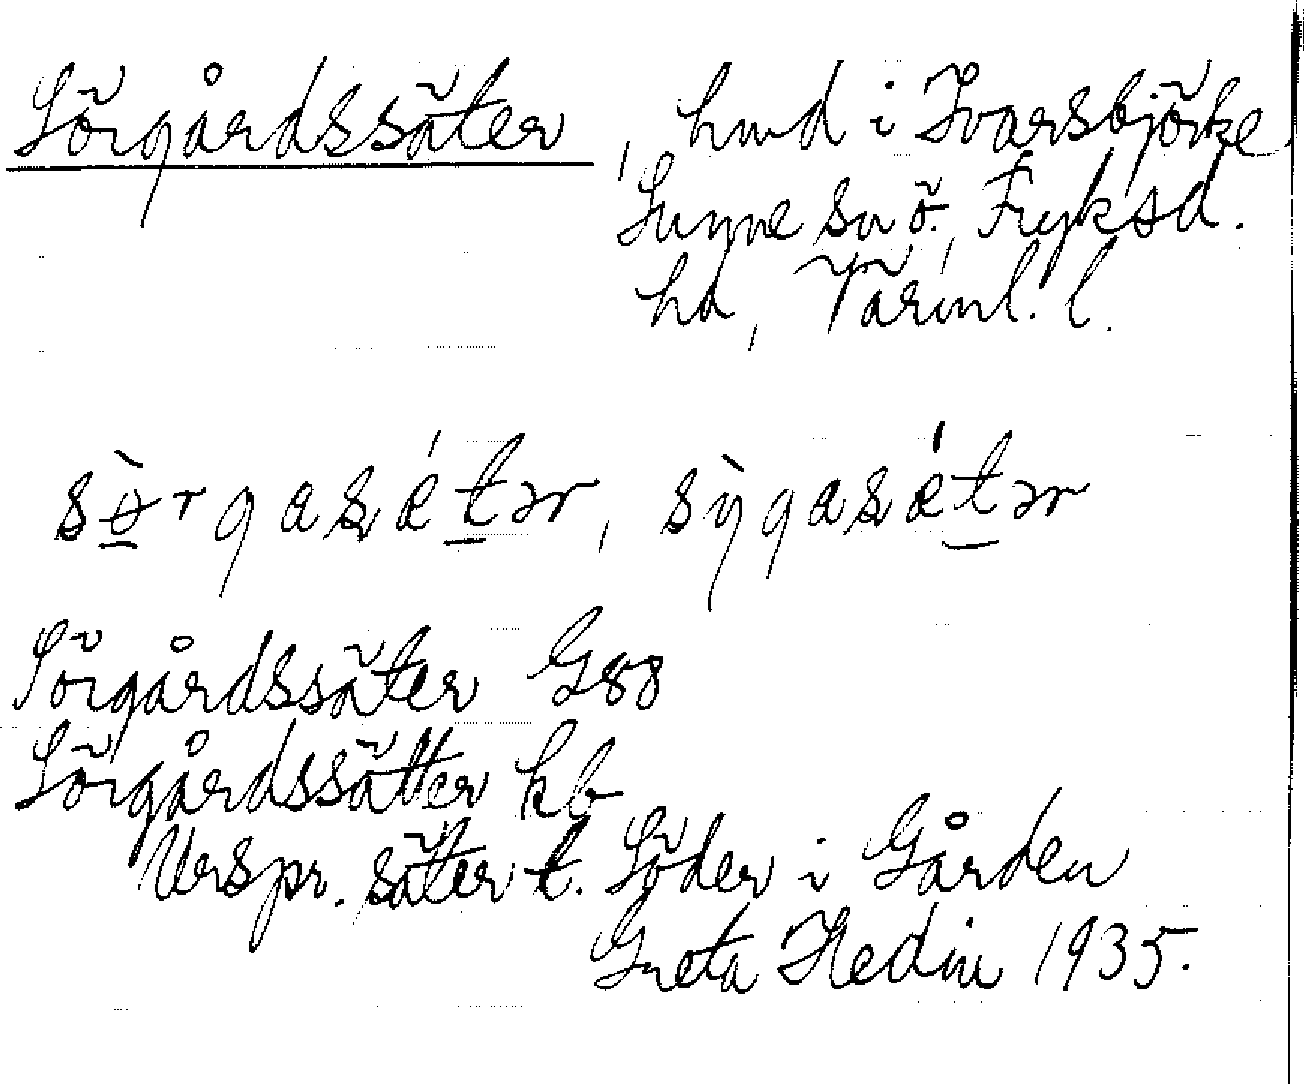 Sörgårdssäter, hmd i Ivarsbjörke,
Sunne sn ö., Fryksd.
hd, Värml. l.
sø̀rgasǽtər, sỳgasǽtər
Sörgårdssäter G88
Sörgårdssätter kb
Urspr. säter t. Söder i Gården
Greta Hedin 1935.